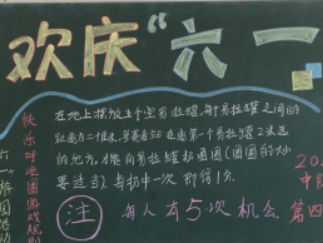 欢庆“六一
在地上摆放五个空易拉罐,每个易拉罐之间的
距离为二十厘米,参赛者站在离第一个易拉罐2米远
的地方,才能向易拉罐扔圈圈(圈圈的大小
要适当)。每扔中一次 则得1分。
注 每人有5次机会
快乐呼啦圈游戏规则
六一游园活动
20
中
第四